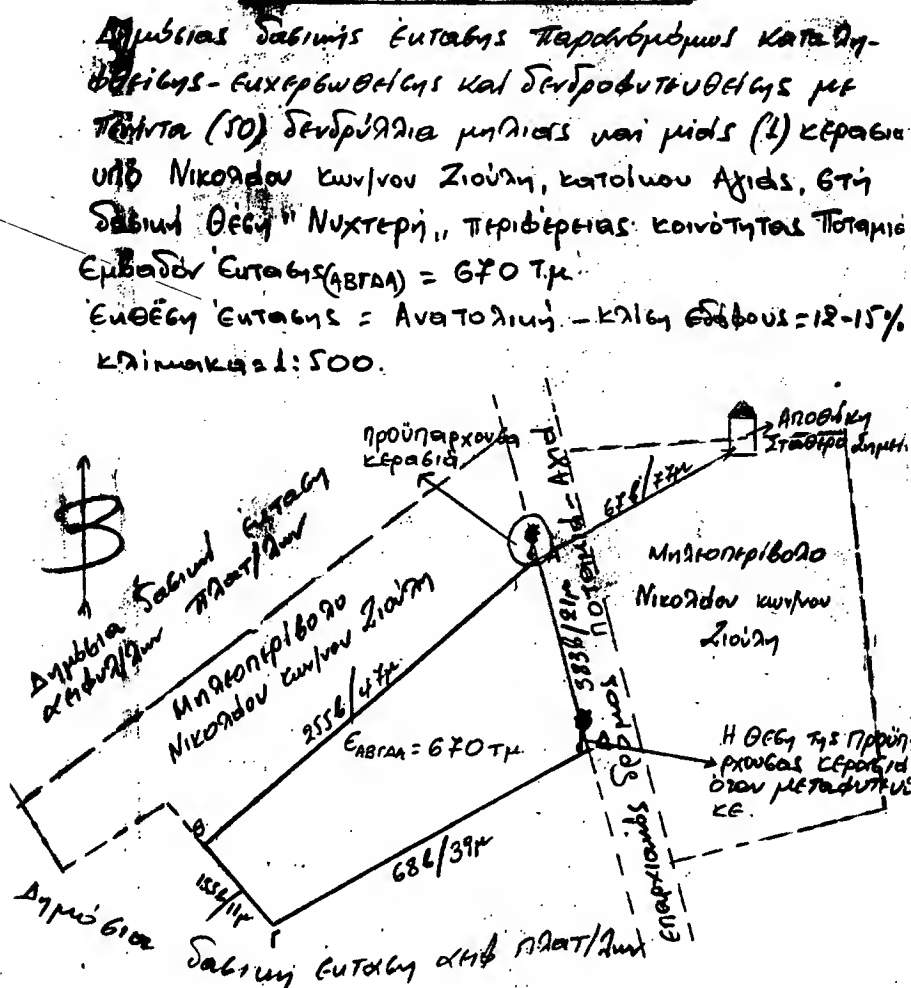 Δημόσιας δασικής έκτασης παρανόμως καταλη-
φθείσης - εκχερσωθείσης και δενδροφυτευθείσης με
πενήντα (50) δενδρύλλια μηλιάς και μιάς (1) κερασιά
υπό Νικολάου Κων/νου Ζιούλη, κατοίκου Αγιάς, στη
δασική θέση "Νυχτερή„ περιφέρειας κοινότητας Ποταμιά
Εμβαδόν Έκτασης (ΑΒΓΔΑ) = 670 Τ.μ.
Έκθεση Έκτασης = Ανατολική - κλίση εδάφους = 12-15%
κλίμακα = 1:500.
προϋπάρχουσα
κερασιά
Αποθήκη
Σταθερό Σημεί
Β
Δημόσια δασική έκταση
αειφύλ/λων πλατ/λων
Μηλεοπερίβολο
Νικολάου Κων/νου Ζιούλη
67β/77μ
Μηλεοπερίβολο
Νικολάου κων/νου
Ζιούλη
255β/47μ
383β/21μ
Επαρχιακός δρόμος Ποταμιά - Αχιλ
Α
Ε ΑΒΓΔΑ = 670 τμ.
Δ
Η θέση της Προϋπ
ρχουσας κερασιά
όταν μεταφυτεύ
κε.
Β
68β/39μ
155β/11μ
Γ
Δημόσια δασική έκταση αειφ πλατ/λων